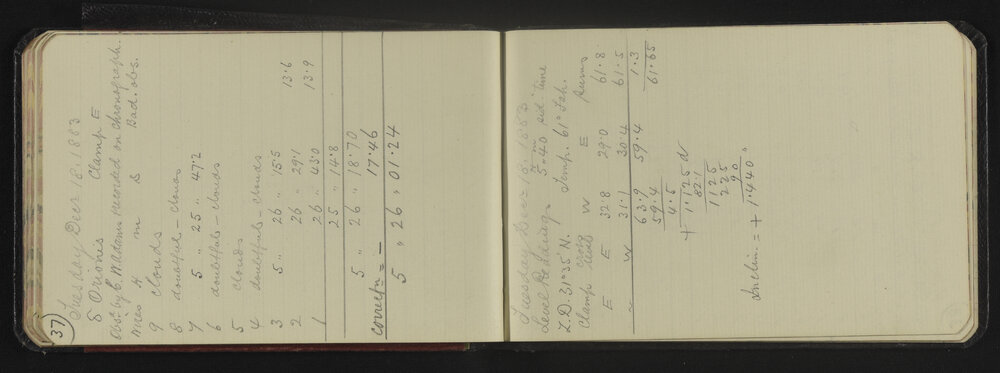 37
Tuesday Decr 18. 1883
δ Orionis Clamp E
Obsd by C. Wadams recorded on chronograph.
Wires H m s Bad. obs.
9 clouds
8 doubtful - clouds
7 5 " 25 " 47.2
6 doubtful - clouds
5 clouds
4 doubtful - clouds
3 5 " 26 " 15.5
2 26 " 29.1 13.6
1 26 " 43.0 13.9
25 " 14.8
5 " 26 " 18.70
correctn = - 17.46
5 " 26 " 01.24
Tuesday Decr 18. 1883
Level Readings 5h.40m sid. time
Z.D. 31° 35' N. Temp. 61° Fah.
Clamp W E Sums
E E 32.8 29.0 61.8
W 31.1 30.4 61.5
63.9 59.4 1.3
59.4 61.65
4.5
+ 1.125 d
82.1
1125
225
90
Inclin. = + 1.440"